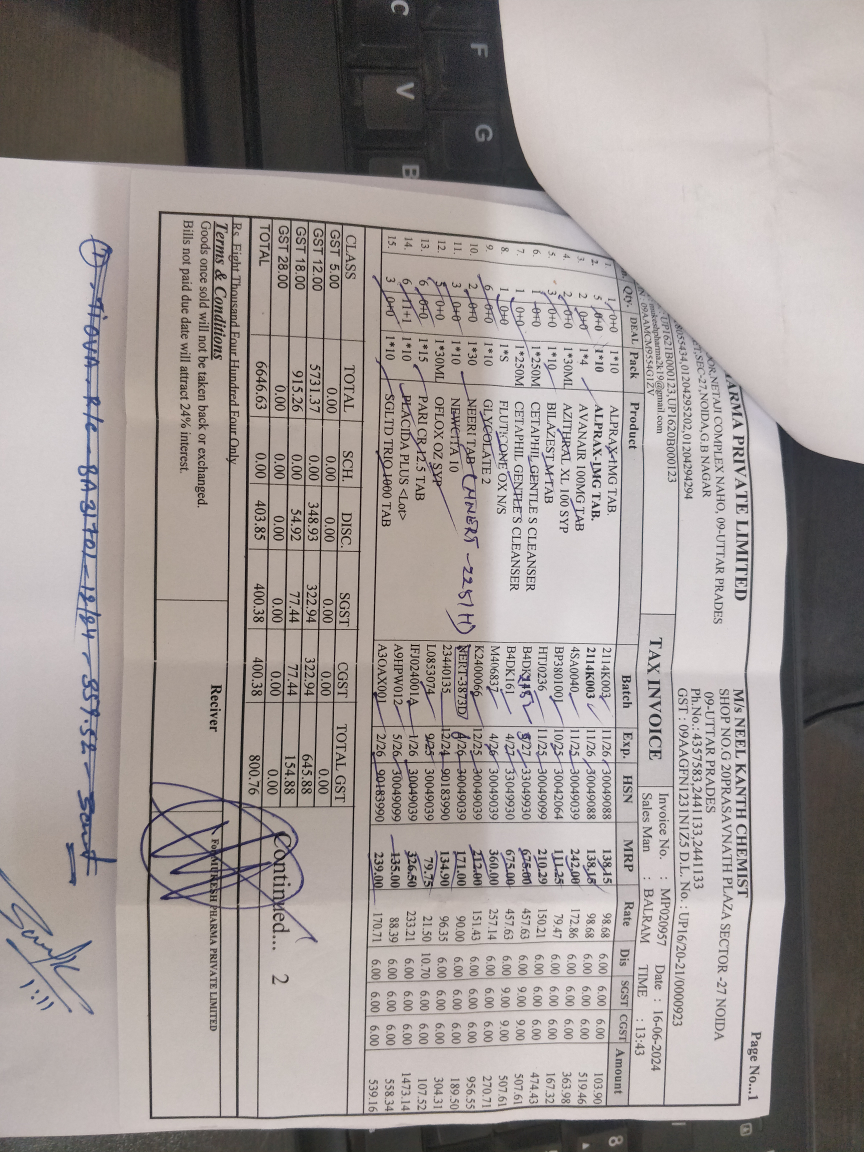 Page No...1
ARMA PRIVATE LIMITED
OOR, NETAJI COMPLEX NAHO, 09-UTTAR PRADES
SEC-27, NOIDA, G.B NAGAR
01204295202, 01204294294
UP16TB000123, UP1620B000123
pharma2k19@gmail.com
09AAMCM9554G1ZV
M/s NEEL KANTH CHEMIST
SHOP NO.G 20PRASAVNATH PLAZA SECTOR -27 NOIDA
09-UTTAR PRADES
Ph.No.: 4357583,2441133,2441133
GST : 09AAGFN1231N1Z5 D.L. No. : UP16/20-21/0000923
TAX INVOICE
Invoice No. : MP020957 Date : 16-06-2024
Sales Man : BALRAM TIME : 13:43
Qty. DEAL Pack Product Batch Exp. HSN MRP Rate Dis SGST CGST Amount
1. 1 0+0 1*10 ALPRAX-1MG TAB. 2114K003 11/26 30049088 138.15 98.68 6.00 6.00 6.00 103.90
2. 5 0+0 1*10 ALPRAX-1MG TAB. 2114K003 11/26 30049088 138.15 98.68 6.00 6.00 6.00 519.46
3. 2 0+0 1*4 AVANAIR 100MG TAB 4SA0040 11/25 30049039 242.00 172.86 6.00 6.00 6.00 363.98
4. 2 0+0 1*30ML AZITHRAL XL 100 SYP BP380100 10/25 30042064 111.25 79.47 6.00 6.00 6.00 167.32
5. 3 0+0 1*10 BILAZEST M TAB HTJ0236 11/25 30049099 210.29 150.21 6.00 6.00 6.00 474.43
6. 1 0+0 1*250M CETAPHIL GENTLE S CLEANSER 8/27 33049930 675.00 457.63 6.00 9.00 9.00 507.61
7. 1 0+0 1*250M CETAPHIL GENTLE S CLEANSER B4DK161 4/27 33049930 675.00 457.63 6.00 9.00 9.00 507.61
8. 1 0+0 1*S FLUTICONE OX N/S M406837 4/26 30049039 360.00 257.14 6.00 6.00 6.00 270.71
9. 6 0+0 1*10 GLYCOLATE 2 K2400066 12/25 30049039 212.00 151.43 6.00 6.00 6.00 956.55
10. 2 0+0 1*30 NEERI TAB (NNERT-2251H) NERT-3873D 30049039 171.00 90.00 6.00 6.00 6.00 189.50
11. 3 0+0 1*10 NEWCITA 10 23440135 12/24 90183990 134.90 96.35 6.00 6.00 6.00 304.31
12. 5 0+0 1*30ML OFLOX OZ SYP L0853074 9/25 30049039 79.75 21.50 10.70 6.00 6.00 107.52
13. 6 0+0 1*15 PARI CR-12.5 TAB IFJ024001A 1/26 30049039 326.50 233.21 6.00 6.00 6.00 1473.14
14. 6 11+1 1*10 PLACIDA PLUS <Lot> A9HPW012 5/26 30049099 135.00 88.39 6.00 6.00 6.00 558.34
15. 3 0+0 1*10 SGLTD TRIO 1000 TAB A3OAX001 2/26 90183990 239.00 170.71 6.00 6.00 6.00 539.16
CLASS TOTAL SCH. DISC. SGST CGST TOTAL GST
GST 5.00 0.00 0.00 0.00 0.00 0.00 0.00
GST 12.00 5731.37 0.00 348.93 322.94 322.94 645.88
GST 18.00 915.26 0.00 54.92 77.44 77.44 154.88
GST 28.00 0.00 0.00 0.00 0.00 0.00 0.00
TOTAL 6646.63 0.00 403.85 400.38 400.38 800.76
Continued... 2
Rs. Eight Thousand Four Hundred Four Only
Terms & Conditions
Goods once sold will not be taken back or exchanged.
Bills not paid due date will attract 24% interest.
Reciver
For MUKESH PHARMA PRIVATE LIMITED
1:11
C
F
V
G
B
8